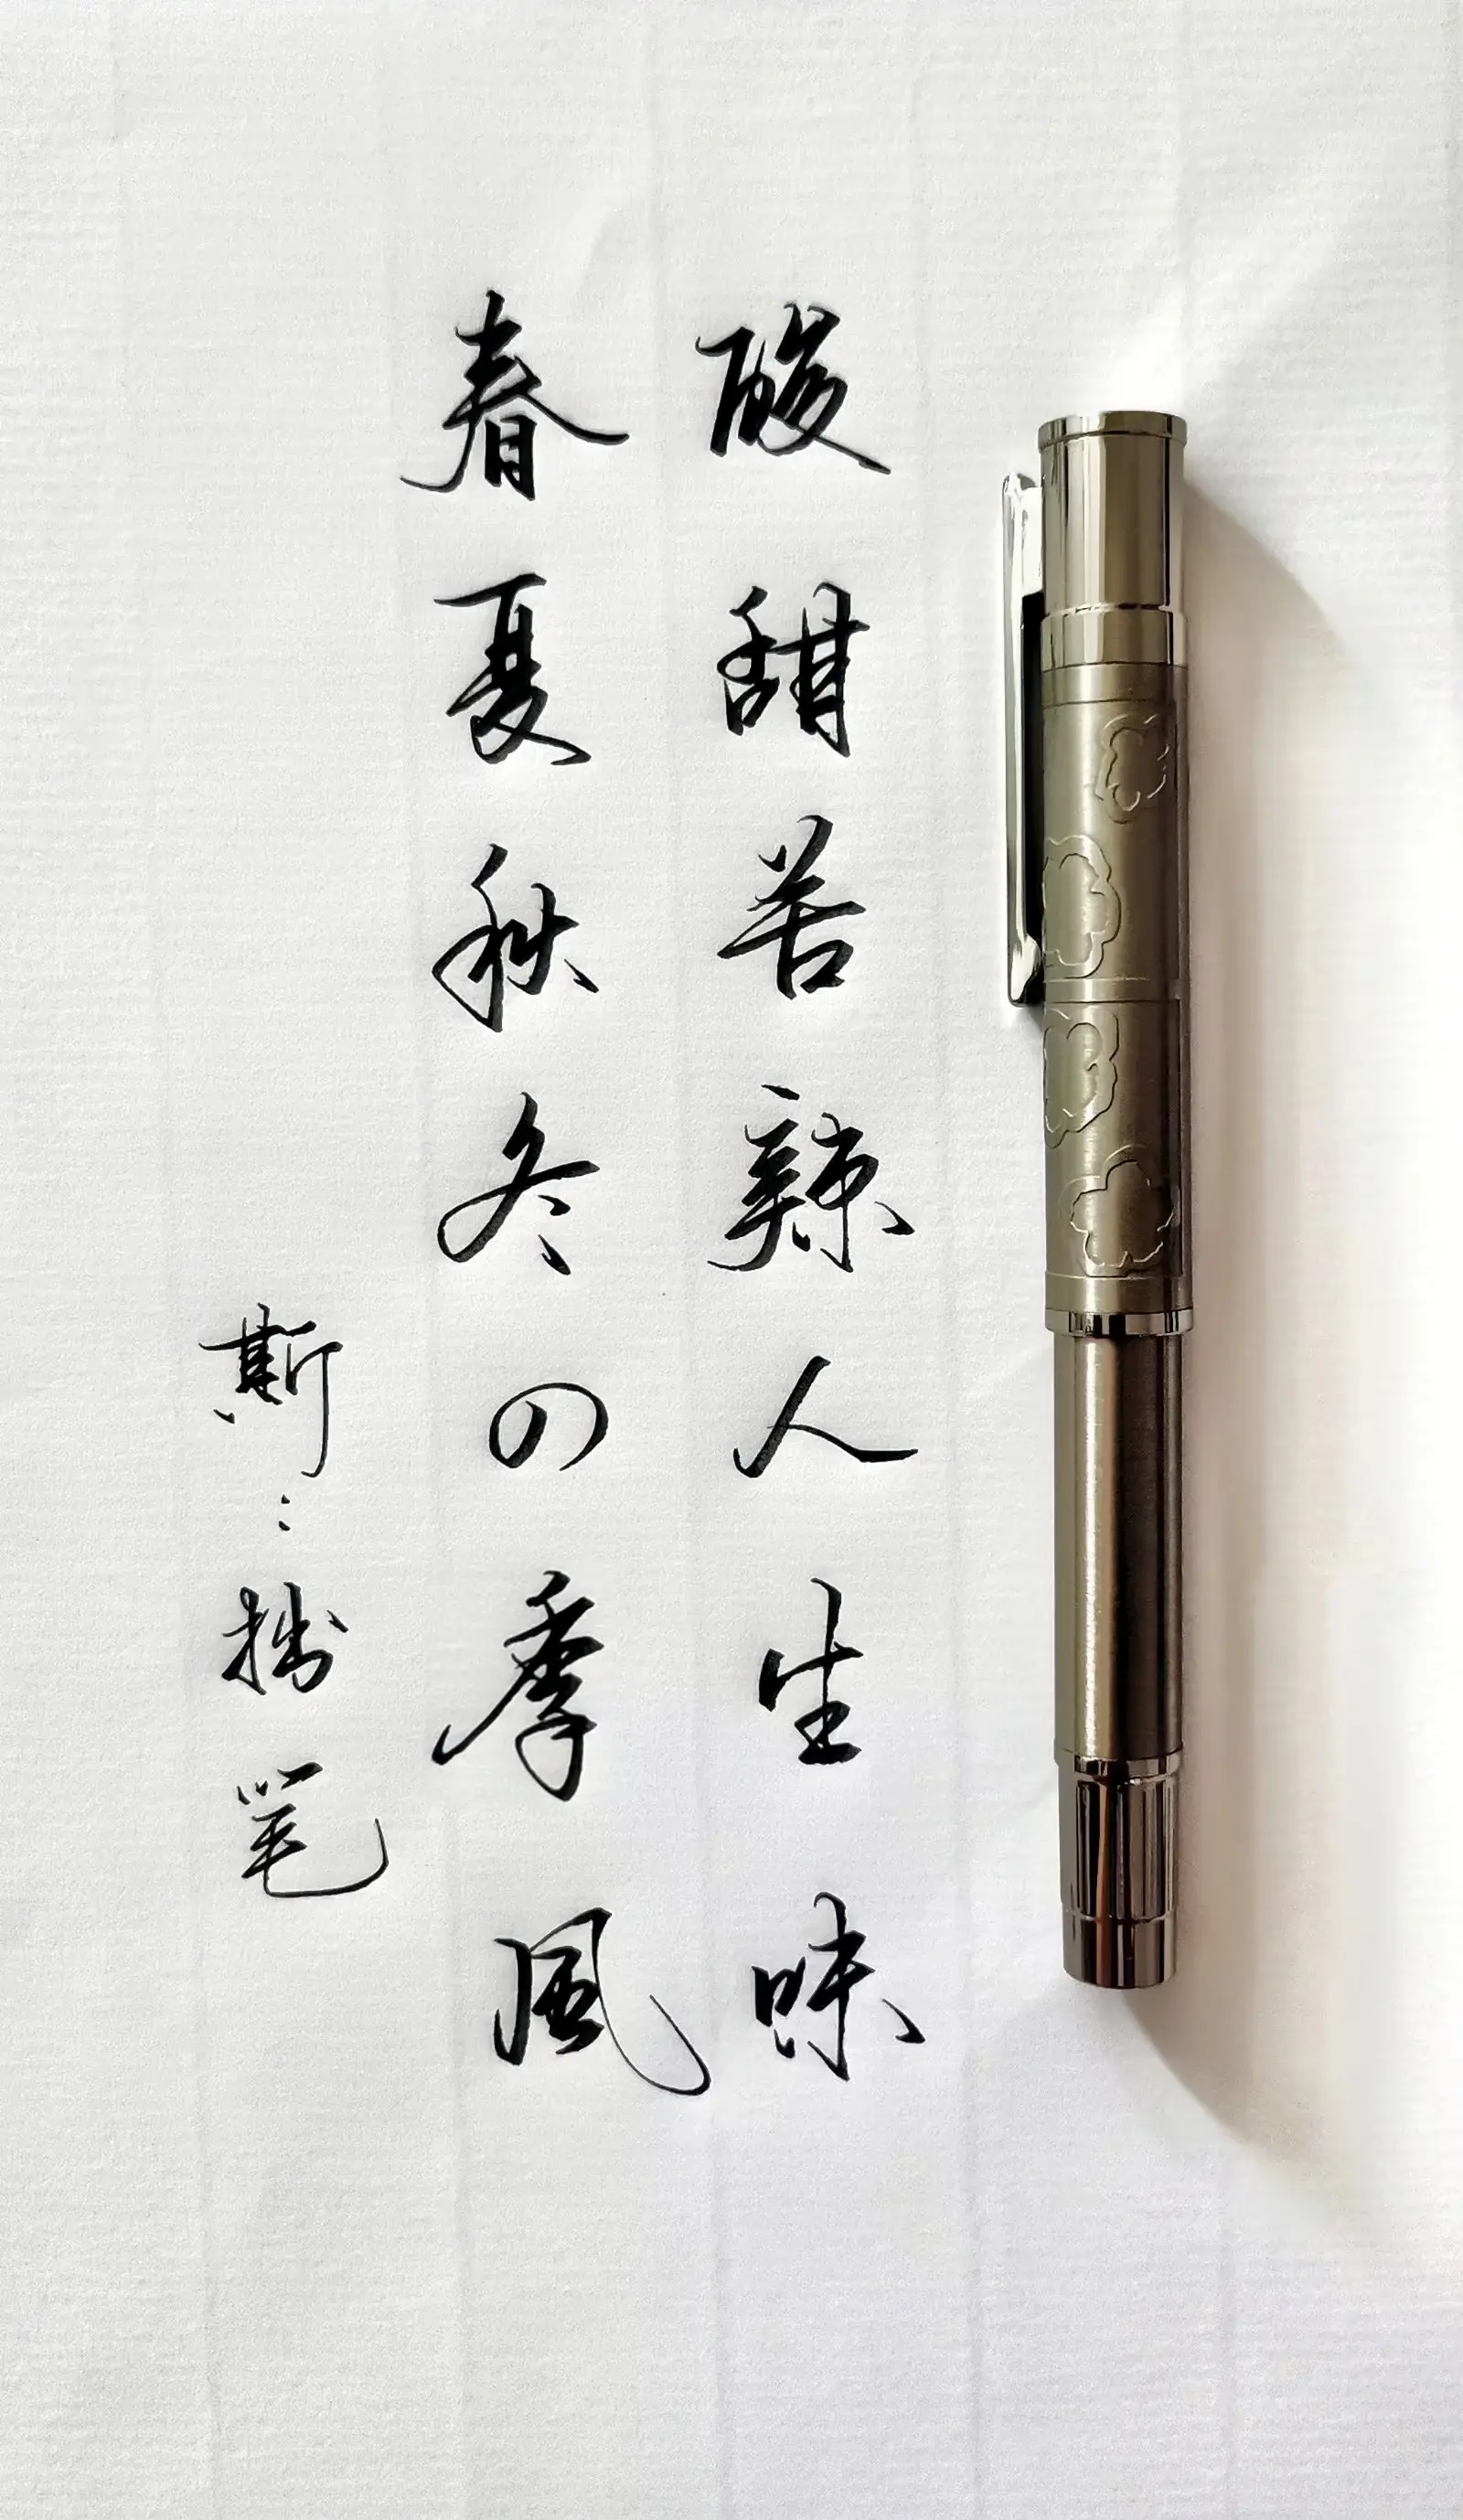 酸甜苦辣人生味
春夏秋冬四季風
斯〻拙笔